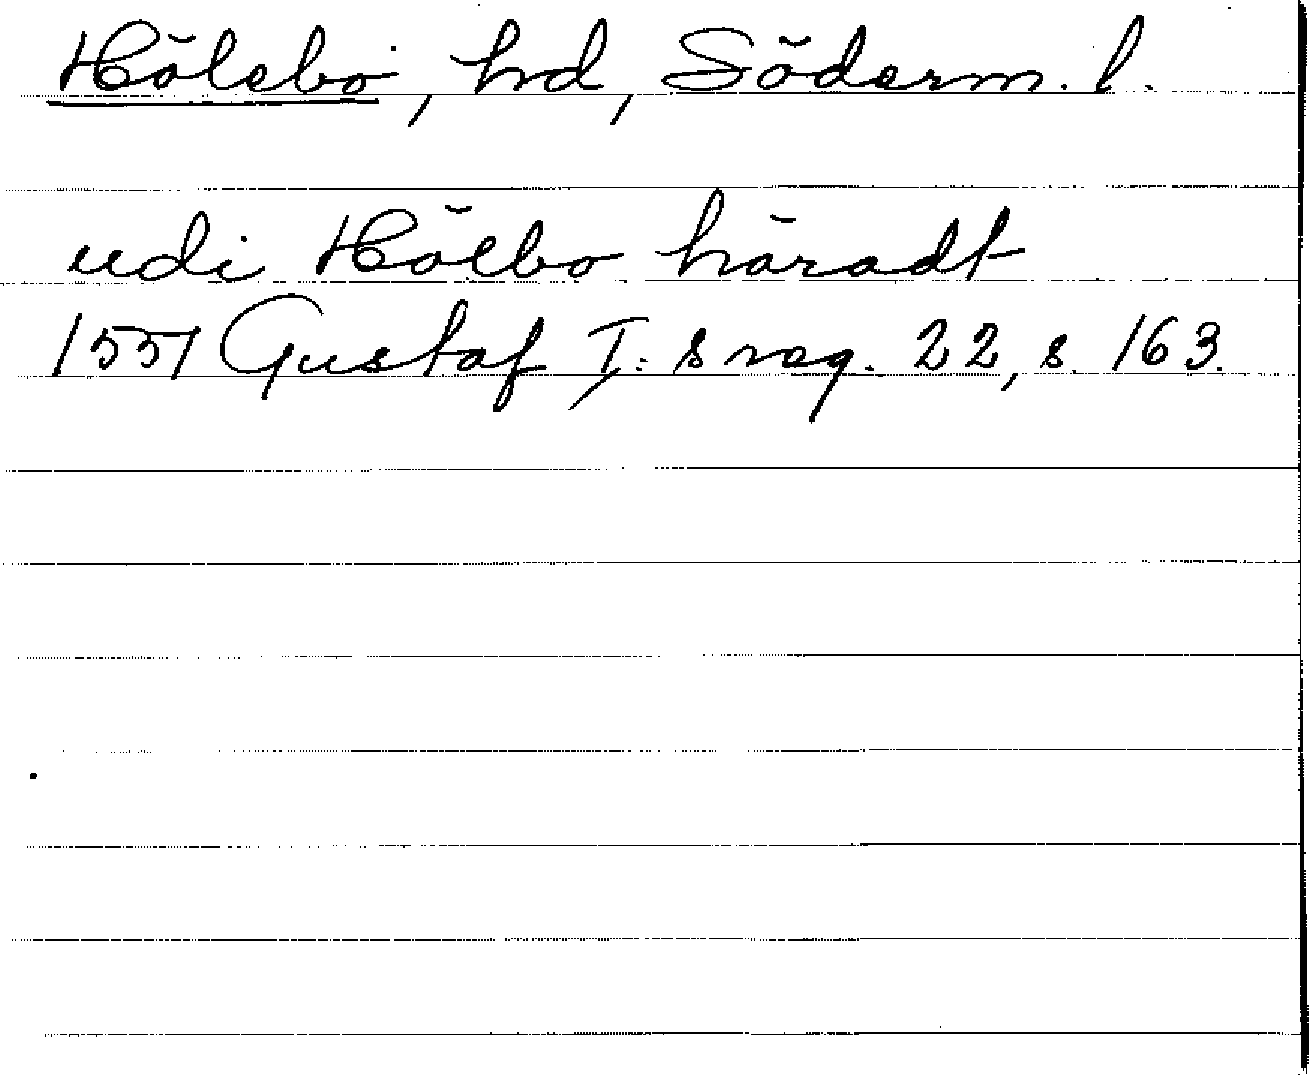 Hölebo, hd, Söderm. l.
udi Hölbo häradt
1551 Gustaf I:s reg. 22, s. 163.